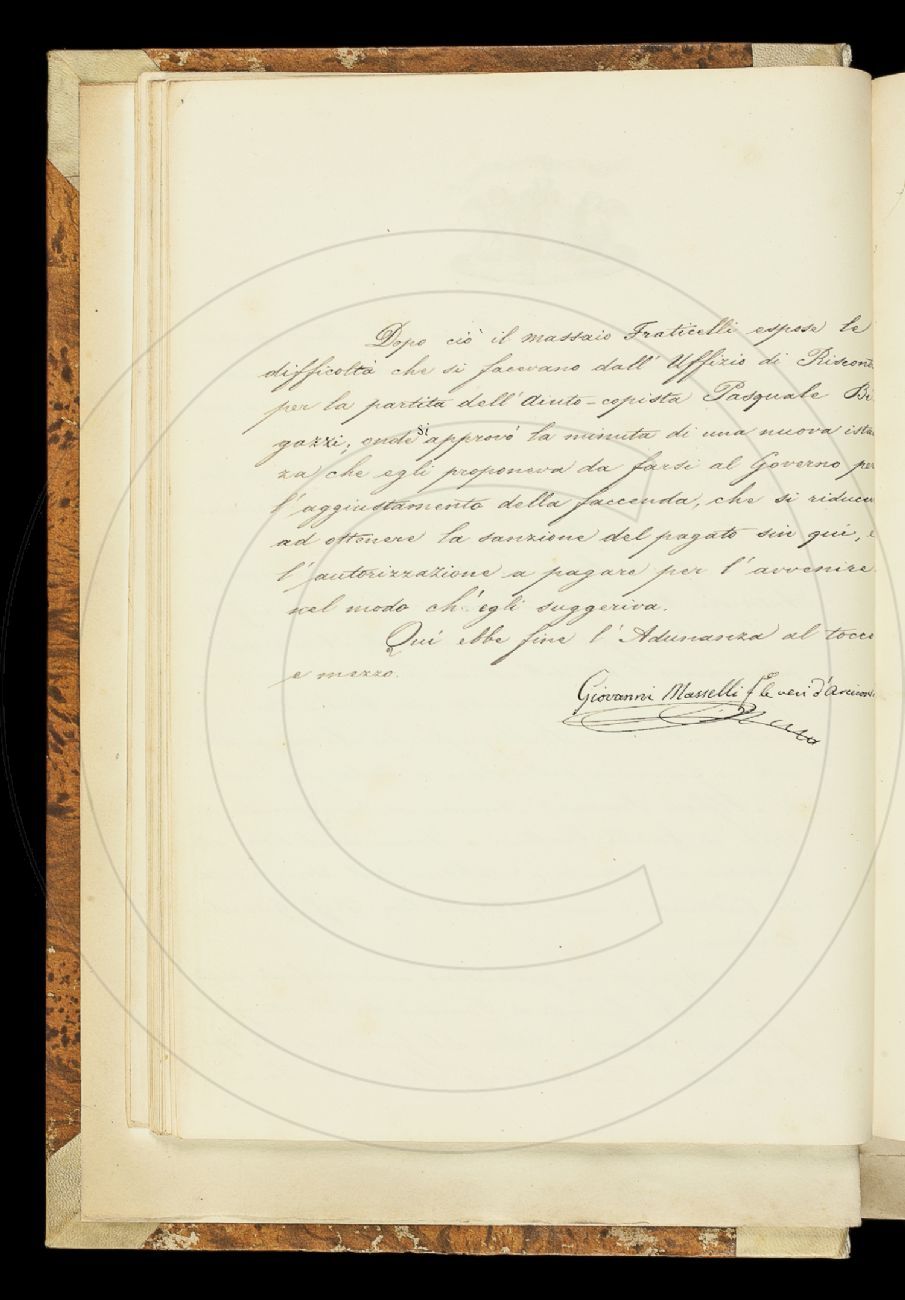 Dopo ciò il massaio Fraticelli espose le
difficoltà che si facevano dall' Uffizio di Riscont
per la partita dell' aiuto-copista Pasquale Bi
gazzi; onde si approvò la minuta di una nuova ista
za che egli proponeva da farsi al Governo per
l' aggiustamento della faccenda, che si riduce
ad ottenere la sanzione del pagato sin qui, e
l' autorizzazione a pagare per l' avvenire
nel modo ch' egli suggeriva.
Qui ebbe fine l' Adunanza al tocco
e mezzo.
Giovanni Masselli